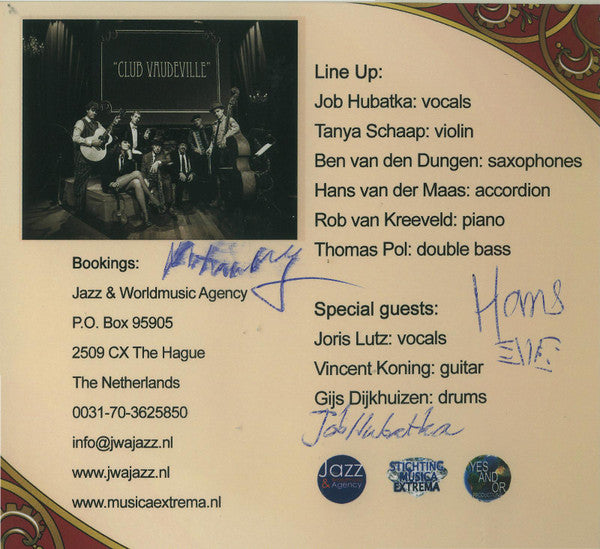 "CLUB VAUDEVILLE"
Line Up:
Job Hubatka: vocals
Tanya Schaap: violin
Ben van den Dungen: saxophones
Hans van der Maas: accordion
Rob van Kreeveld: piano
Thomas Pol: double bass
Special guests:
Joris Lutz: vocals
Vincent Koning: guitar
Gijs Dijkhuizen: drums
Hans
Job Hubatka
Bookings:
Jazz & Worldmusic Agency
P.O. Box 95905
2509 CX The Hague
The Netherlands
0031-70-3625850
info@jwajazz.nl
www.jwajazz.nl
www.musicaextrema.nl
Jazz
& Agency
STICHTING
MUSICA
EXTREMA
YES
AND
OR